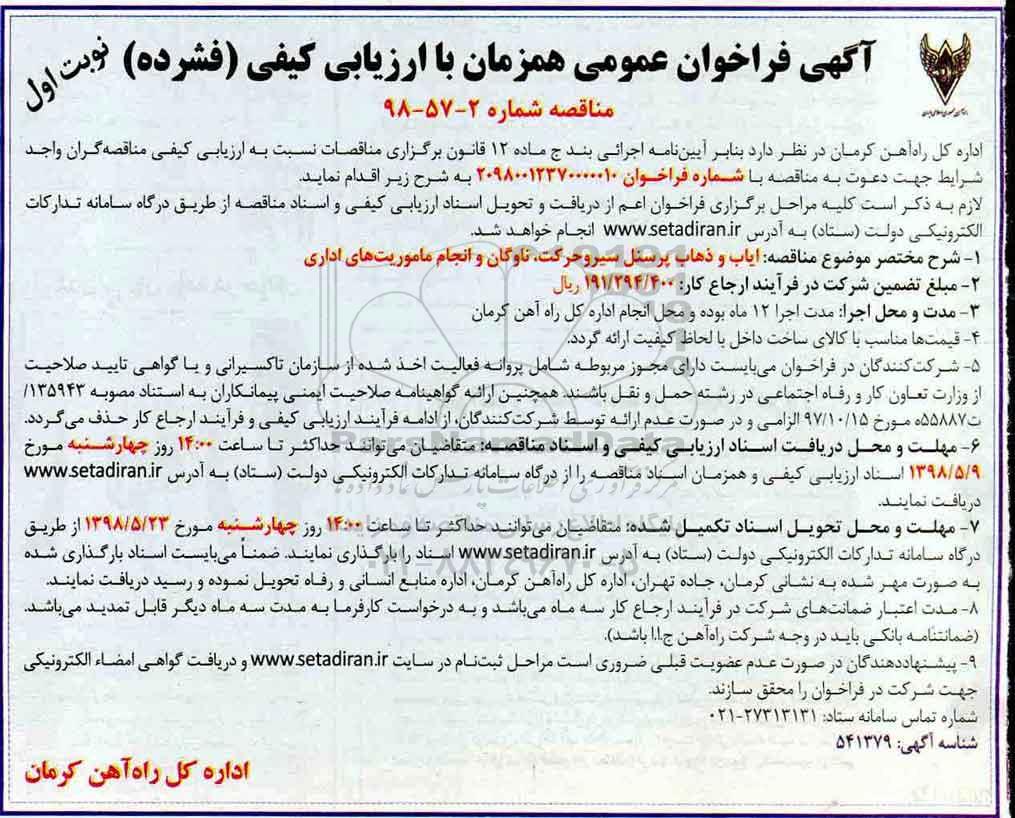 آگهی فراخوان عمومی همزمان با ارزیابی کیفی (فشرده)
نوبت اول
مناقصه شماره ۲-۵۷-۹۸
اداره کل راه‌آهن کرمان در نظر دارد بنابر آیین‌نامه اجرائی بند ج ماده ۱۲ قانون برگزاری مناقصات نسبت به ارزیابی کیفی مناقصه‌گران واجد
شرایط جهت دعوت به مناقصه با شماره فراخوان ۲۰۹۸۰۰۱۲۳۷۰۰۰۰۱۰ به شرح زیر اقدام نماید.
لازم به ذکر است کلیه مراحل برگزاری فراخوان اعم از دریافت و تحویل اسناد ارزیابی کیفی و اسناد مناقصه از طریق درگاه سامانه تدارکات
الکترونیکی دولت (ستاد) به آدرس www.setadiran.ir انجام خواهد شد.
۱- شرح مختصر موضوع مناقصه: ایاب و ذهاب پرسنل سیروحرکت، ناوگان و انجام ماموریت‌های اداری
۲- مبلغ تضمین شرکت در فرآیند ارجاع کار: ۱۹۱/۲۹۴/۴۰۰ ریال
۳- مدت و محل اجرا: مدت اجرا ۱۲ ماه بوده و محل انجام اداره کل راه آهن کرمان
۴- قیمت‌ها مناسب با کالای ساخت داخل با لحاظ کیفیت ارائه گردد.
۵- شرکت‌کنندگان در فراخوان می‌بایست دارای مجوز مربوطه شامل پروانه فعالیت اخذ شده از سازمان تاکسیرانی و یا گواهی تایید صلاحیت
از وزارت تعاون کار و رفاه اجتماعی در رشته حمل و نقل باشند. همچنین ارائه گواهینامه صلاحیت ایمنی پیمانکاران به استناد مصوبه ۱۳۵۹۴۳/
ت۵۵۸۸۷ه مورخ ۹۷/۱۰/۱۵ الزامی و در صورت عدم ارائه توسط شرکت‌کنندگان، از ادامه فرآیند ارزیابی کیفی و فرآیند ارجاع کار حذف می‌گردد.
۶- مهلت و محل دریافت اسناد ارزیابی کیفی و اسناد مناقصه: متقاضیان می‌توانند حداکثر تا ساعت ۱۴:۰۰ روز چهارشنبه مورخ
۱۳۹۸/۵/۹ اسناد ارزیابی کیفی و همزمان اسناد مناقصه را از درگاه سامانه تدارکات الکترونیکی دولت (ستاد) به آدرس www.setadiran.ir
دریافت نمایند.
۷- مهلت و محل تحویل اسناد تکمیل شده: متقاضیان می‌توانند حداکثر تا ساعت ۱۴:۰۰ روز چهارشنبه مورخ ۱۳۹۸/۵/۲۳ از طریق
درگاه سامانه تدارکات الکترونیکی دولت (ستاد) به آدرس www.setadiran.ir اسناد را بارگذاری نمایند. ضمناً می‌بایست اسناد بارگذاری شده
به صورت مهر شده به نشانی کرمان، جاده تهران، اداره کل راه‌آهن کرمان، اداره منابع انسانی و رفاه تحویل نموده و رسید دریافت نمایند.
۸- مدت اعتبار ضمانت‌های شرکت در فرآیند ارجاع کار سه ماه می‌باشد و به درخواست کارفرما به مدت سه ماه دیگر قابل تمدید می‌باشد.
(ضمانتنامه بانکی باید در وجه شرکت راه‌آهن ج.ا.ا باشد).
۹- پیشنهاددهندگان در صورت عدم عضویت قبلی ضروری است مراحل ثبت‌نام در سایت www.setadiran.ir و دریافت گواهی امضاء الکترونیکی
جهت شرکت در فراخوان را محقق سازند.
شماره تماس سامانه ستاد: ۲۷۳۱۳۱۳۱-۰۲۱
شناسه آگهی: ۵۴۱۳۷۹
اداره کل راه‌آهن کرمان